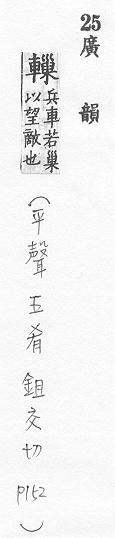 25廣韻
轈兵車若巢以望敵也
(平聲五肴鉏交切P152)